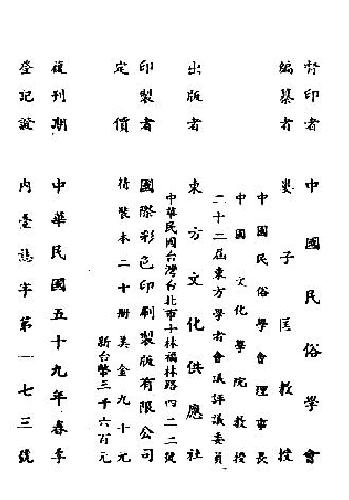 督印者 中國民俗學會
編纂者 婁子匡教授
中國民俗學會理事長
中國文化學院教授
二十二屆東方學者會議評議委員
出版者 東方文化供應社
中華民國台灣台北市士林福林路四二二號
印製者 國際彩色印刷製版有限公司
定價 精裝本二十册美金九十元
新台幣三千六百元
復刊期 中華民國五十九年春季
登記證 內臺誌字第一七三號